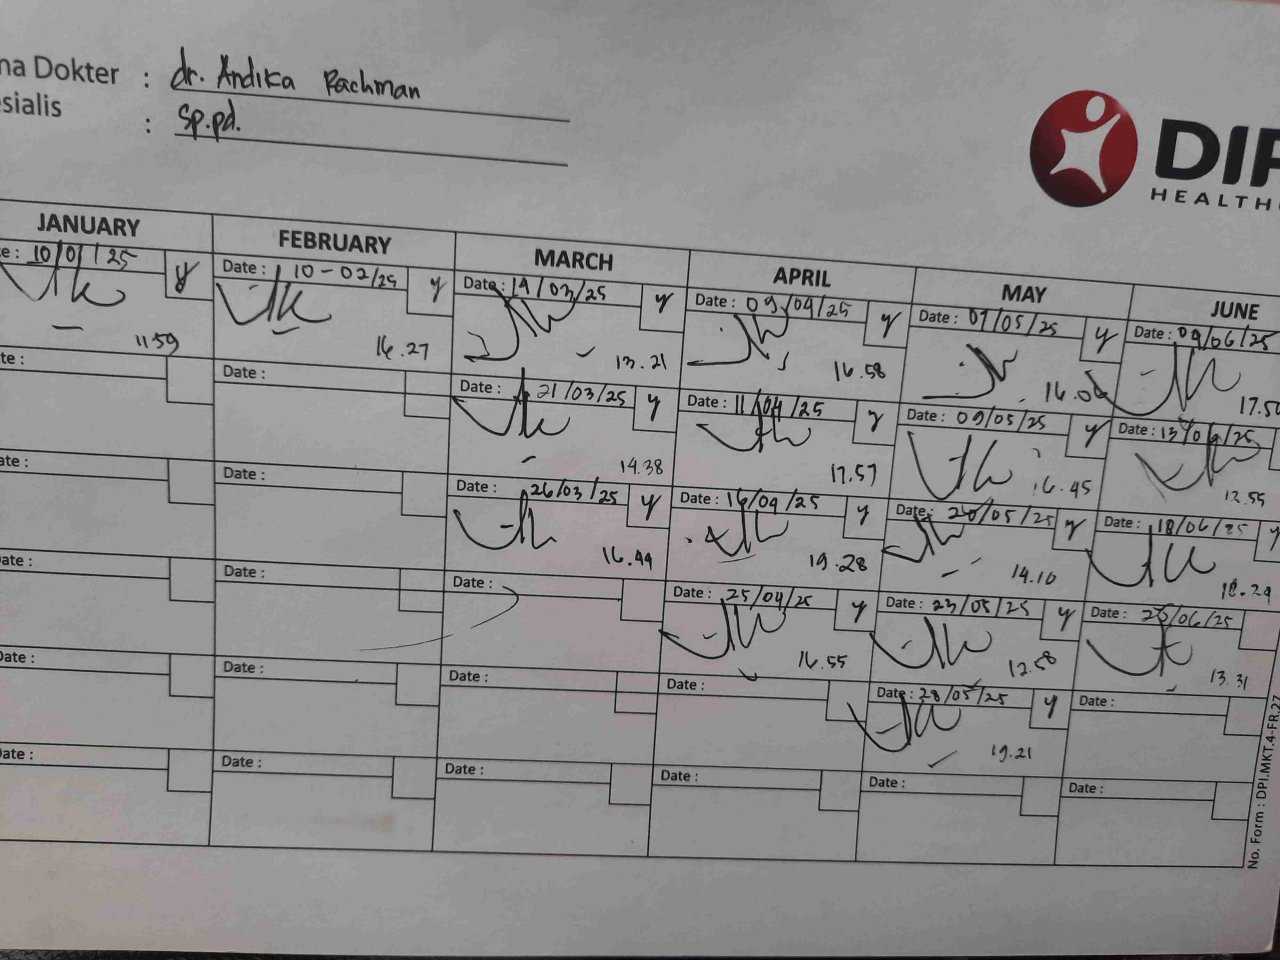 na Dokter : dr. Andika Rachman
esialis : Sp.pd.
DIP
HEALTH
JANUARY FEBRUARY MARCH APRIL MAY JUNE
e : 10/01/25 y Date : 10-02/25 y Date : 19/03/25 y Date : 09/04/25 y Date : 07/05/25 y Date : 09/06/25
11.59 16.27 13.21 16.58 16.06 17.50
te : Date : Date : 21/03/25 y Date : 11/04/25 y Date : 09/05/25 y Date : 13/06/25
14.38 17.57 16.45 12.55
ate : Date : Date : 26/03/25 y Date : 16/04/25 y Date : 20/05/25 y Date : 18/06/25 y
16.44 19.28 14.10 18.29
ate : Date : Date : Date : 25/04/25 y Date : 23/05/25 y Date : 25/06/25
16.55 12.58 13.31
Date : Date : Date : Date : Date : 28/05/25 y Date :
19.21
ate : Date : Date : Date : Date : Date :
No. Form : DPI.MKT.4-FR.27